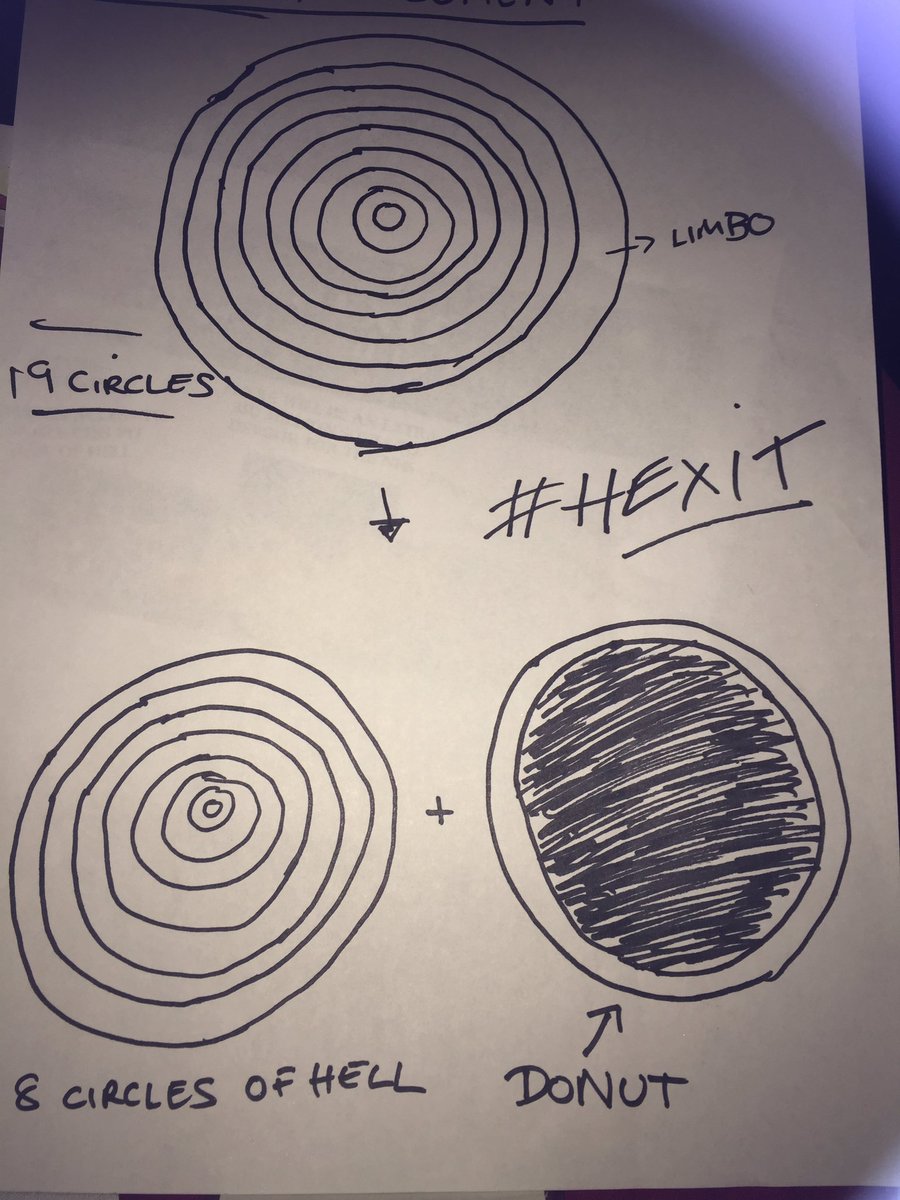 LIMBO
9 CIRCLES
#HEXIT
+
8 CIRCLES OF HELL
DONUT